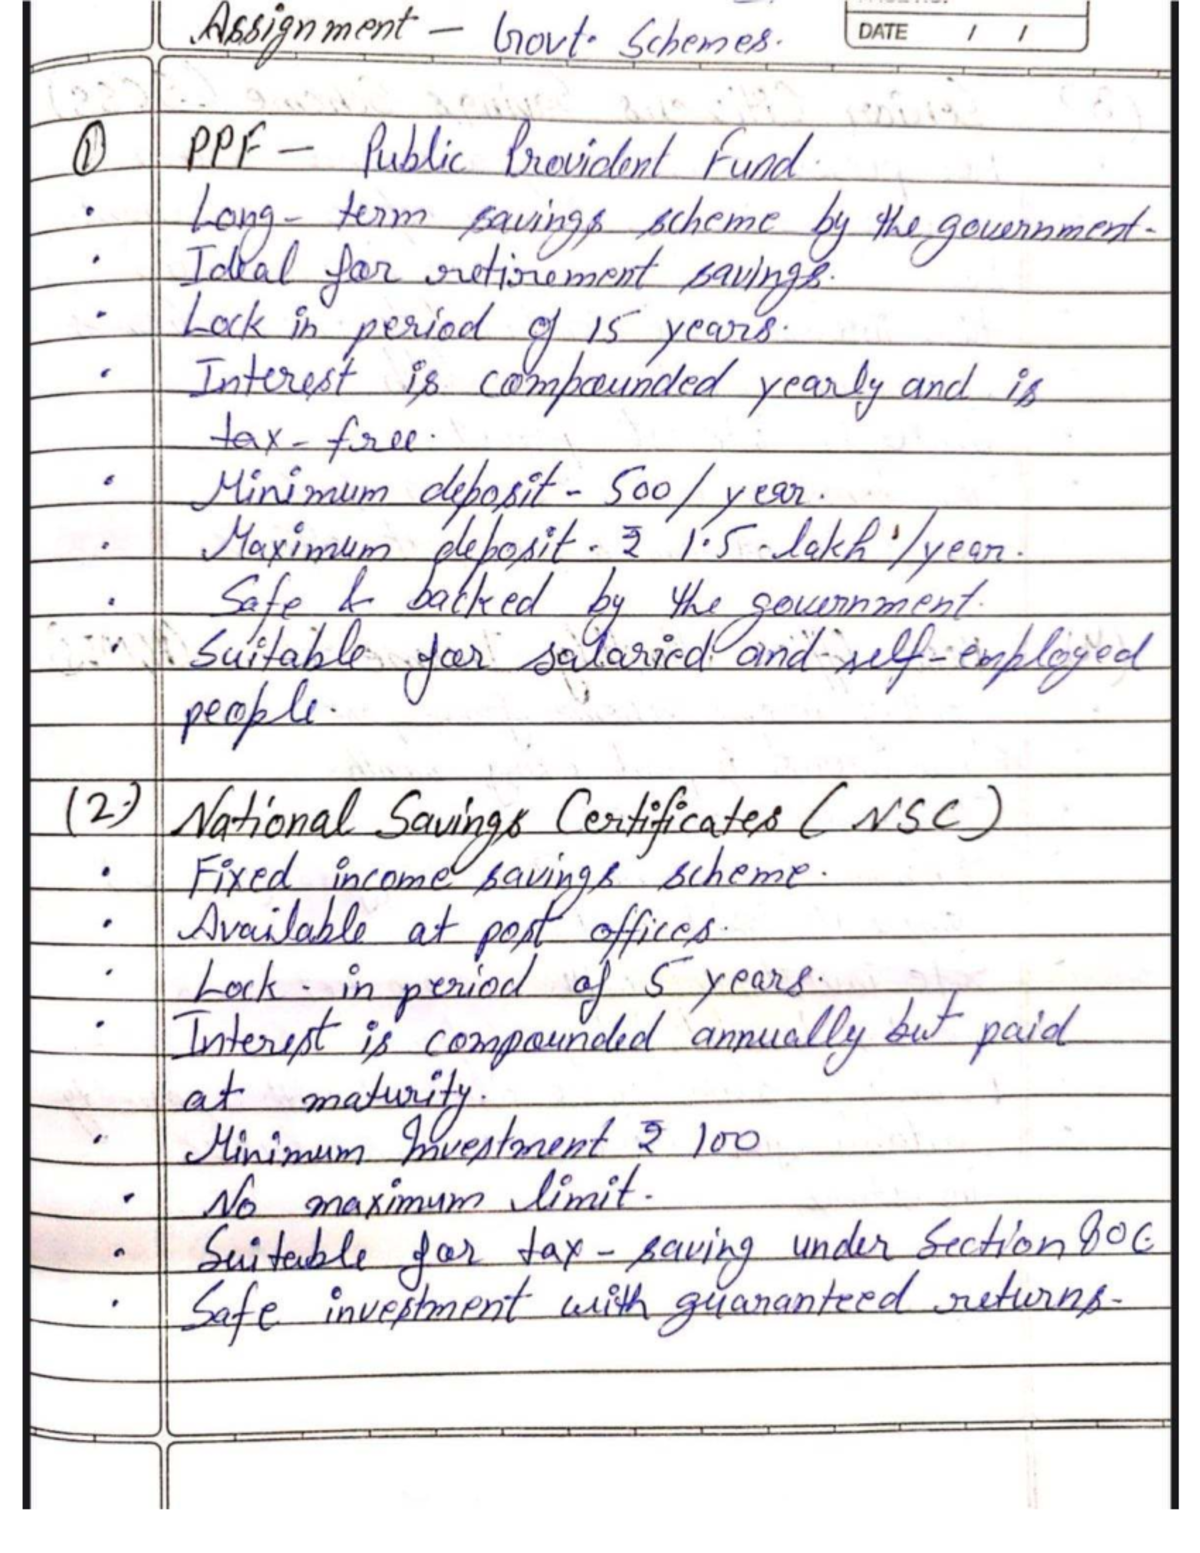 Assignment - Govt. Schemes.
DATE / /
① PPF - Public Provident Fund.
• Long-term savings scheme by the government.
• Ideal for retirement savings.
• Lock in period of 15 years.
• Interest is compounded yearly and is
tax-free.
• Minimum deposit - 500/year.
• Maximum deposit - ₹ 1.5 lakh/year.
• Safe & backed by the government.
• Suitable for salaried and self-employed
people.
(2.) National Savings Certificates (NSC)
• Fixed income savings scheme.
• Available at post offices.
• Lock-in period of 5 years.
• Interest is compounded annually but paid
at maturity.
• Minimum Investment ₹ 100
• No maximum limit.
• Suitable for tax-saving under Section 80C
• Safe investment with guaranteed returns.